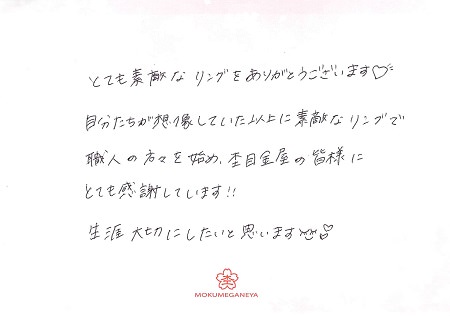 とても素敵なリングをありがとうございます♡
自分たちが想像していた以上に素敵なリングで
職人の方々を始め、杢目金屋の皆様に
とても感謝しています!!
生涯大切にしたいと思います
杢
MOKUMEGANEYA